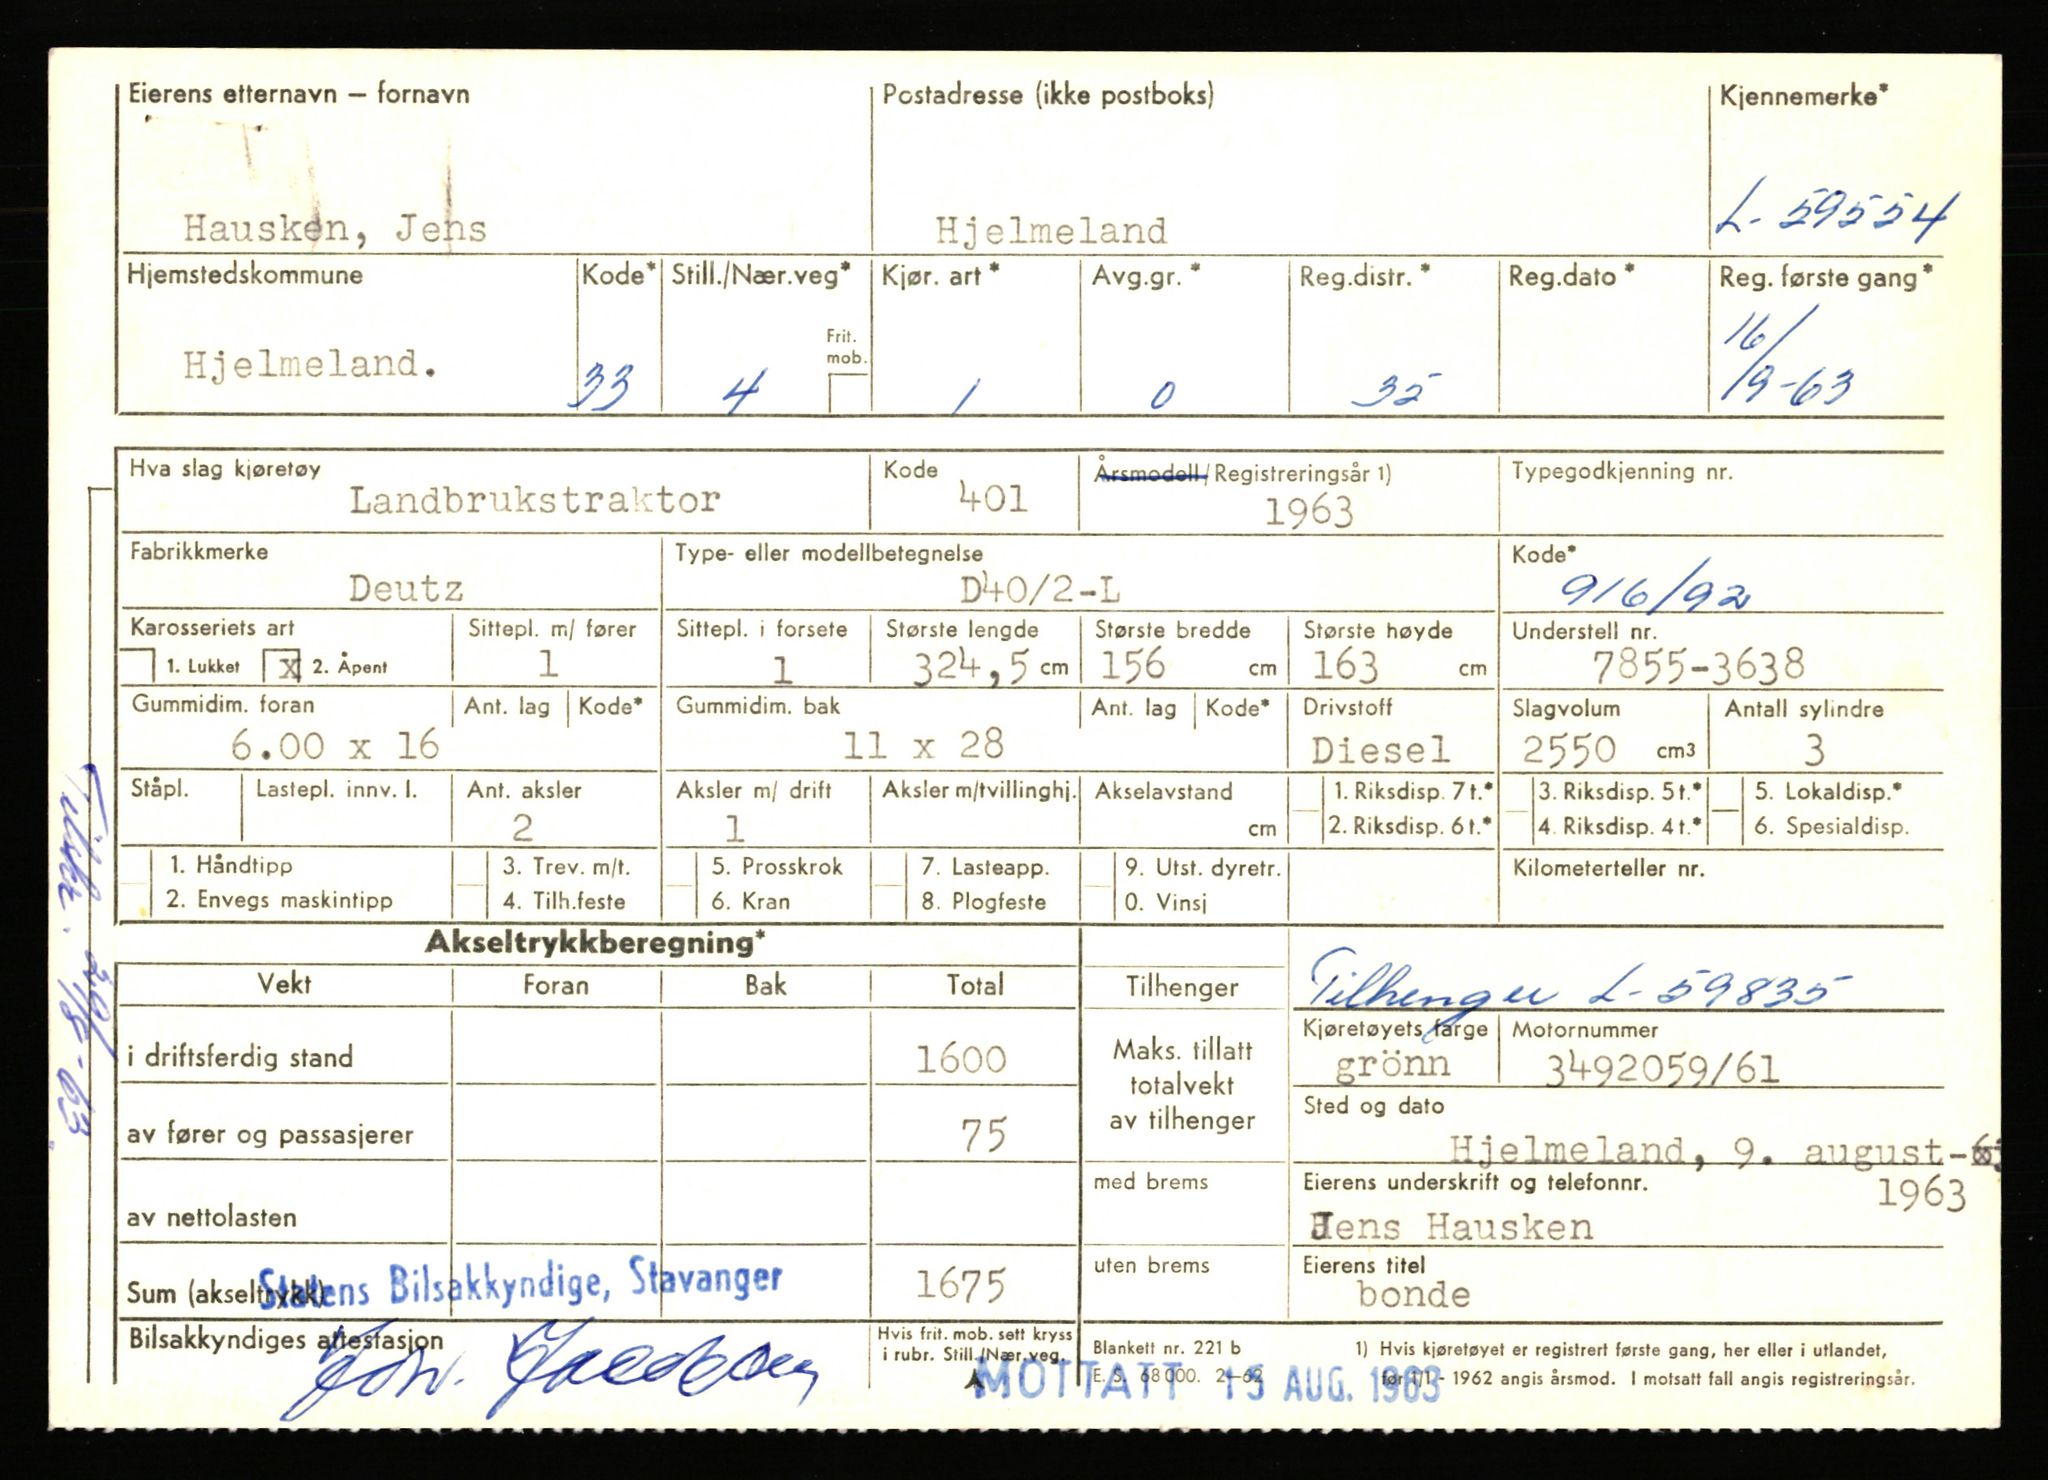 Eierens etternavn – fornavn
Postadresse (ikke postboks)
Kjennemerke*
Hausken, Jens
Hjelmeland
L-59554
Hjemstedskommune
Kode*
Still./Nær.veg*
Kjør. art *
Avg.gr. *
Reg.distr. *
Reg.dato *
Reg. første gang*
Frit. mob.
Hjelmeland.
33
4
1
0
35
16/9-63
Hva slag kjøretøy
Kode
Årsmodell/Registreringsår 1)
Typegodkjenning nr.
Landbrukstraktor
401
1963
Fabrikkmerke
Type- eller modellbetegnelse
Kode*
Deutz
D40/2-L
916/92
Karosseriets art
Sittepl. m/ fører
Sittepl. i forsete
Største lengde
Største bredde
Største høyde
Understell nr.
1. Lukket
x 2. Åpent
1
1
324,5 cm
156 cm
163 cm
7855-3638
Gummidim. foran
Ant. lag
Kode*
Gummidim. bak
Ant. lag
Kode*
Drivstoff
Slagvolum
Antall sylindre
6.00 x 16
11 x 28
Diesel
2550 cm3
3
Ståpl.
Lastepl. innv. l.
Ant. aksler
Aksler m/ drift
Aksler m/tvillinghj.
Akselavstand
1. Riksdisp. 7 t.*
3. Riksdisp. 5 t.*
5. Lokaldisp.*
2
1
cm
2. Riksdisp. 6 t.*
4. Riksdisp. 4 t.*
6. Spesialdisp.
1. Håndtipp
3. Trev. m/t.
5. Prosskrok
7. Lasteapp.
9. Utst. dyretr.
Kilometerteller nr.
2. Envegs maskintipp
4. Tilh.feste
6. Kran
8. Plogfeste
0. Vinsj
Akseltrykkberegning*
Vekt
Foran
Bak
Total
Tilhenger
Tilhenger L-59835
Kjøretøyets farge
Motornummer
i driftsferdig stand
1600
Maks. tillatt
totalvekt
av tilhenger
grönn
3492059/61
Sted og dato
av fører og passasjerer
75
Hjelmeland, 9. august-
med brems
Eierens underskrift og telefonnr.
1963
av nettolasten
Jens Hausken
uten brems
Eierens titel
Sum (akseltrykk)
Statens Bilsakkyndige, Stavanger
1675
bonde
Bilsakkyndiges attestasjon
Hvis frit. mob. sett kryss
i rubr. Still./Nær.veg.
Blankett nr. 221 b
E. S. 68 000. 2–62
1) Hvis kjøretøyet er registrert første gang, her eller i utlandet,
før 1/1 - 1962 angis årsmod. I motsatt fall angis registreringsår.
MOTTATT 15 AUG. 1963
20/8-63